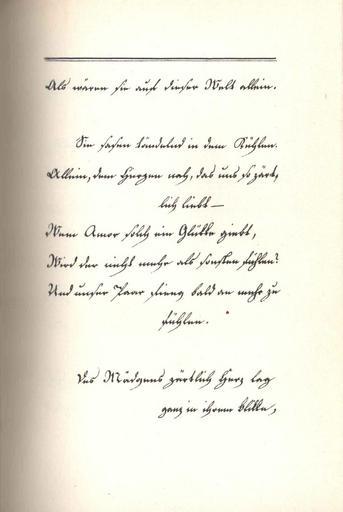 Als wären sie auf dieser Welt allein.
Sie sasen tändelnd in dem Kühlen.
Allein, dem Herzen nah, das uns so zärt-
lich liebt —
Wem Amor solch ein Glükke giebt,
Wird der nicht mehr als sonsten fühlen?
Und unser Paar fieng bald an mehr zu
fühlen.
Des Mädgens zärtlich Herz lag
ganz in ihrem Blikke,